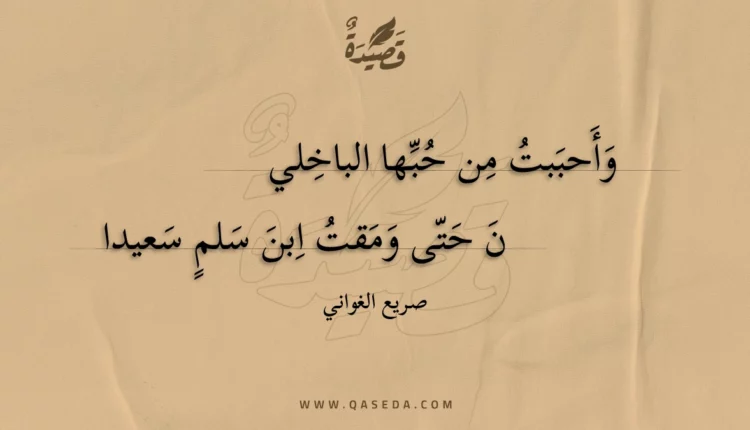 قَصِيْدَةٌ
وَأَحبَبتُ مِن حُبِّها الباخِلي
نَ حَتّى وَمَقتُ اِبنَ سَلمٍ سَعيدا
صريع الغواني
WWW.QASEDA.COM